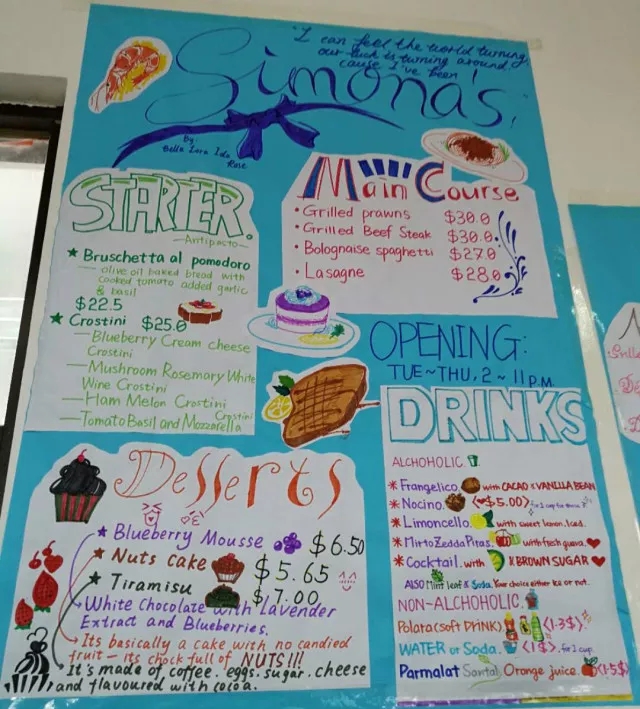 "I can feel the world turning
our luck is turning around
cause I've been
Simona's!"
By:
Bella Lara Ida
Rose
STARTER.
—Antipasto—
★ Bruschetta al pomodoro
— olive oil baked bread with
cooked tomato added garlic
& basil
$22.5
★ Crostini $25.0
— Blueberry Cream cheese
Crostini
— Mushroom Rosemary White
Wine Crostini
— Ham Melon Crostini
— Tomato Basil and Mozzarella Crostini
Main Course
• Grilled prawns $30.0
• Grilled Beef Steak $30.0
• Bolognaise spaghetti $27.0
• Lasagne $28.0
OPENING:
TUE~THU, 2~11 P.M.
DRINKS
ALCHOHOLIC.
* Frangelico with CACAO & VANILLA BEAN
* Nocino. ($5.00) for 1 cup for these
* Limoncello with sweet lemon. Iced.
* Mirto Zedda Piras. with fresh guava.
* Cocktail. with & BROWN SUGAR
ALSO Mint leaf & Soda. Your choice either ice or not.
NON-ALCHOHOLIC.
Polata (soft DRINK) (1.3$)
WATER or Soda. (1$). for 1 cup
Parmalat Santal Orange juice. (1.5$)
Desserts
★ Blueberry Mousse $6.50
★ Nuts Cake $5.65
★ Tiramisu $7.00
White Chocolate with Lavender
Extract and Blueberries.
Its basically a cake with no candied
fruit — its chock full of NUTS!!!
It's made of coffee. eggs. sugar. cheese
and flavoured with cocoa.